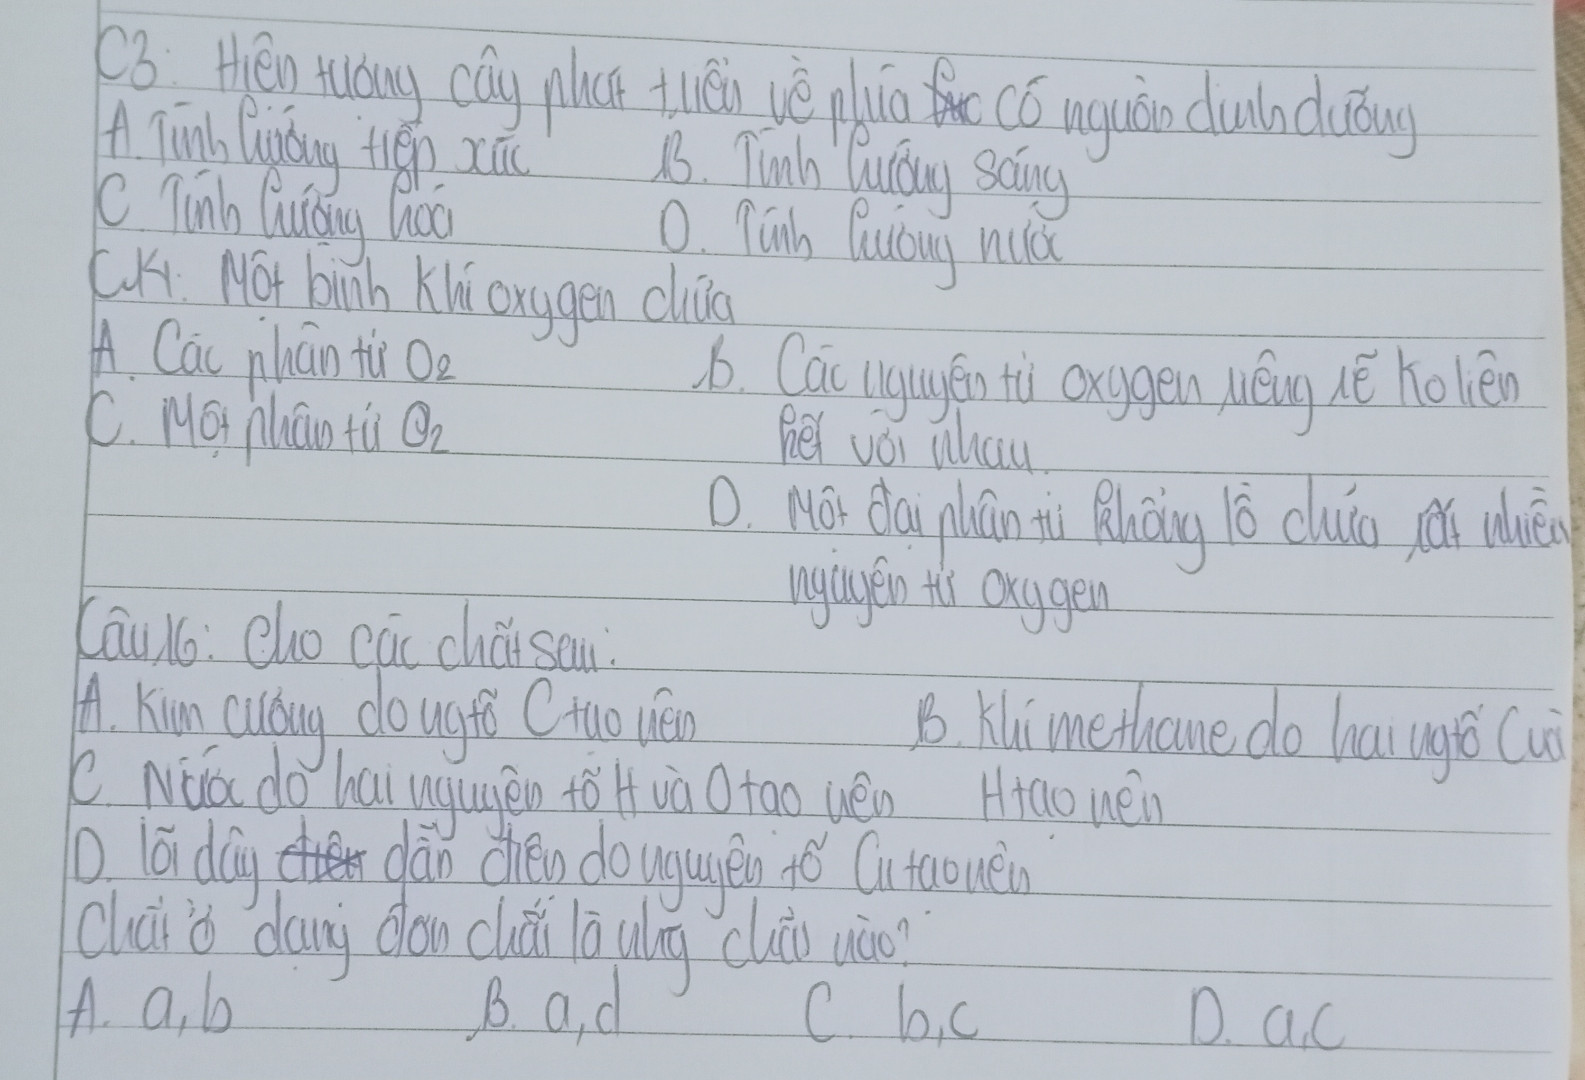 C3: Hiện tượng cây phát triển về phía có nguồn dinh dưỡng
A. Tính hướng tiếp xúc B. Tính hướng sáng
C. Tính hướng hoá D. Tính hướng nước
Một bình khí oxygen chứa
A. Các phân tử O2 B. Các nguyên tử oxygen riêng rẽ ko liên
C. Một phân tử O2 kết với nhau
D. Một đại phân tử khổng lồ chứa rất nhiều
nguyên tử oxygen
Câu 16: Cho các chất sau:
A. Kim cương do ngtố C tạo nên B. Khí methane do hai ngtố C và
C. Nước do hai nguyên tố H và O tạo nên H tạo nên
D. lõi dây dẫn điện do nguyên tố Cu tạo nên
Chất ở dạng đơn chất là nhg chất nào?
A. a, b B. a, d C. b, c D. a, c